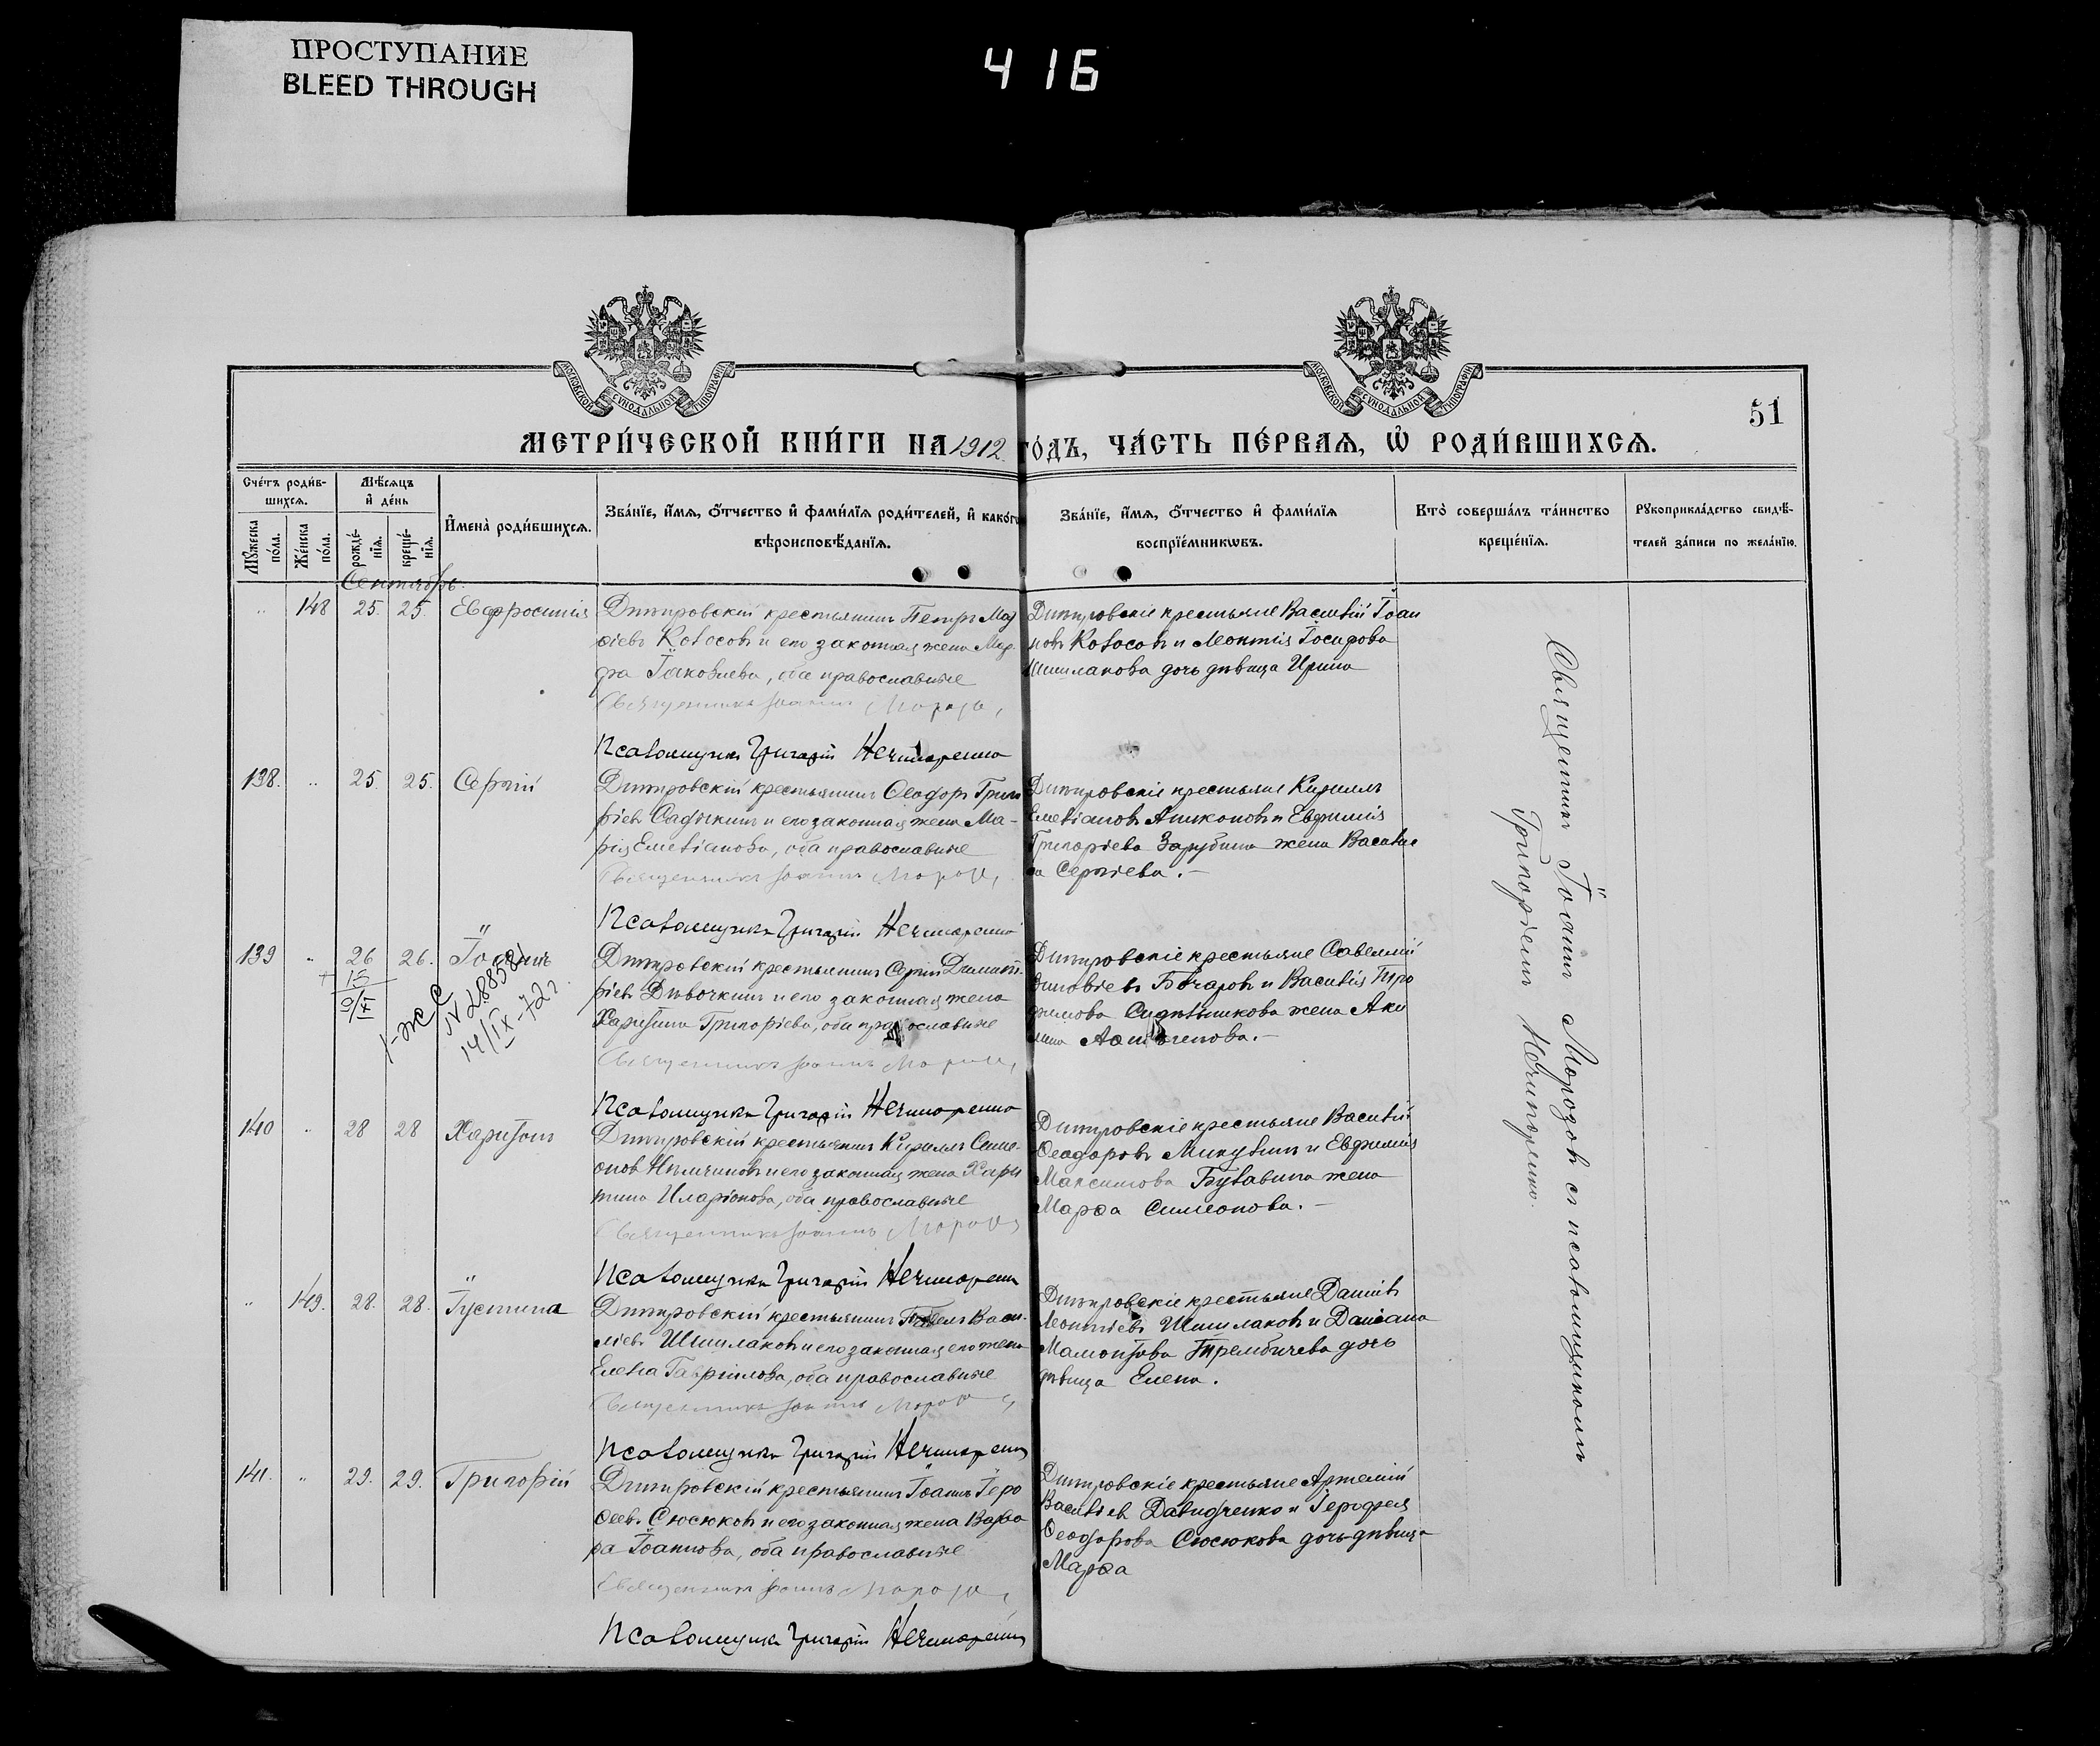 ПРОСТУПАНИЕ
BLEED THROUGH
416
МОСКОВСКОЙ СѴНОДАЛЬНОЙ ТИПОГРАФІИ
МОСКОВСКОЙ СѴНОДАЛЬНОЙ ТИПОГРАФІИ
51
МЕТРИ́ЧЕСКОЙ КНИ́ГИ НА 1912 ГО́ДЪ, ЧА́СТЬ ПЕ́РВАѦ, Ѡ҆ РОДИ́ВШИХСѦ.
Сче́тъ роди́в-
шихсѧ.
Мѣ́сѧцъ
и҆ де́нь
Мꙋ́жеска
по́ла.
Же́нска
по́ла.
рожде́-
нїѧ.
креще́-
нїѧ.
И҆мена̀ роди́вшихсѧ.
Зва́нїе, и҆́мѧ, ѻ҆́тчество и҆ фами́лїѧ роди́телей, и҆ како́гѡ
вѣроисповѣ́данїѧ.
Зва́нїе, и҆́мѧ, ѻ҆́тчество и҆ фами́лїѧ
воспрїе́мникѡвъ.
Кто̀ соверша́лъ та́инство
креще́нїѧ.
Рꙋкоприкла́дство свидѣ́-
телей за́писи по жела́нїю.
Сентябрь
" 148 25. 25. Евфросинія
Дмитровскій крестьянинъ Петръ Моѵ
сіевъ Колосовъ и его законная жена Мар-
фа Іаковлева, оба православные
Священникъ Іоаннъ Морозов
Псаломщикъ Григорій Нечипоренко
Дмитровскіе крестьяне Василій Іоан
новъ Колосовъ и Леонтія Іосифова
Шишлакова дочь дѣвица Ирина
138. " 25. 25. Сергій
Дмитровскій крестьянинъ Ѳеодоръ Григо
ріевъ Садчкинъ и его законная жена Ма-
рія Емеліанова, оба православные
Священникъ Іоаннъ Морозов
Псаломщикъ Григорій Нечипоренко
Дмитровскіе крестьяне Кириллъ
Емеліановъ и Евфимія
Григоріева Зарубина жена Василис
са Сергіева.—
139 " 26 26. Іоаннъ
+ 15
I-ЖС
N 28858
14/IX-72г.
Дмитровскій крестьянинъ Сергій Димит-
ріевъ Дѣвочкинъ и его законная жена
Харитина Григоріева, оба православные
Священникъ Іоаннъ Морозов
Псаломщикъ Григорій Нечипоренко
Дмитровскіе крестьяне Савелий
Бочаровъ и Василія Тро
фимова Сидѣльникова жена Аки
лина
140 " 28 28 Харитонъ
Дмитровскій крестьянинъ Кириллъ Симе-
оновъ Нѣмчиновъ и его законная жена Хари
тина Иларіонова, оба православные
Священникъ Іоаннъ Морозов
Псаломщикъ Григорій Нечипоренко
Дмитровскіе крестьяне Василій
Ѳеодоровъ Микулинъ и Евфимія
Максимова Булавина жена
Марѳа Симеонова.—
" 149. 28. 28. Іустина
Дмитровскій крестьянинъ Павелъ Васи-
ліевъ Шишлаковъ и его законная его жена
Елена Гавріилова, оба православные
Священникъ Іоаннъ Морозов
Псаломщикъ Григорій Нечипоренко
Дмитровскіе крестьяне Даніилъ
Леонтіевъ Шишлаковъ и Даміана
Мамонтова Трембичева дочь
дѣвица Елена.
141. " 29. 29. Григорій
Дмитровскій крестьянинъ Іоаннъ Іеро
ѳеевъ Сюсюковъ и его законная жена Варва
ра Іоаннова, оба православные
Священникъ Іоаннъ Морозов
Псаломщикъ Григорій Нечипоренко
Дмитровскіе крестьяне Артемій
Василіевъ Давидченко и Іерофея
Ѳеодорова Сюсюкова дочь дѣвица
Марѳа
Священникъ Іоаннъ Морозовъ съ псаломщикомъ
Григоріемъ Нечипоренко.